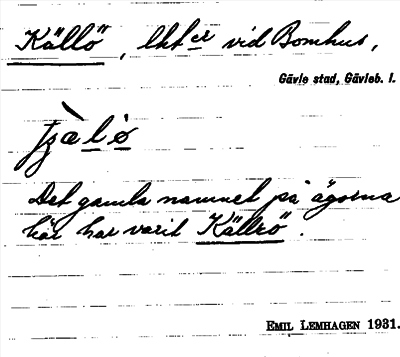 Källö, lht er vid Bomhus,
Gävle stad, Gävleb. l.
Det gamla namnet på ägorna
här har varit Källrö.
EMIL LEMHAGEN 1931.